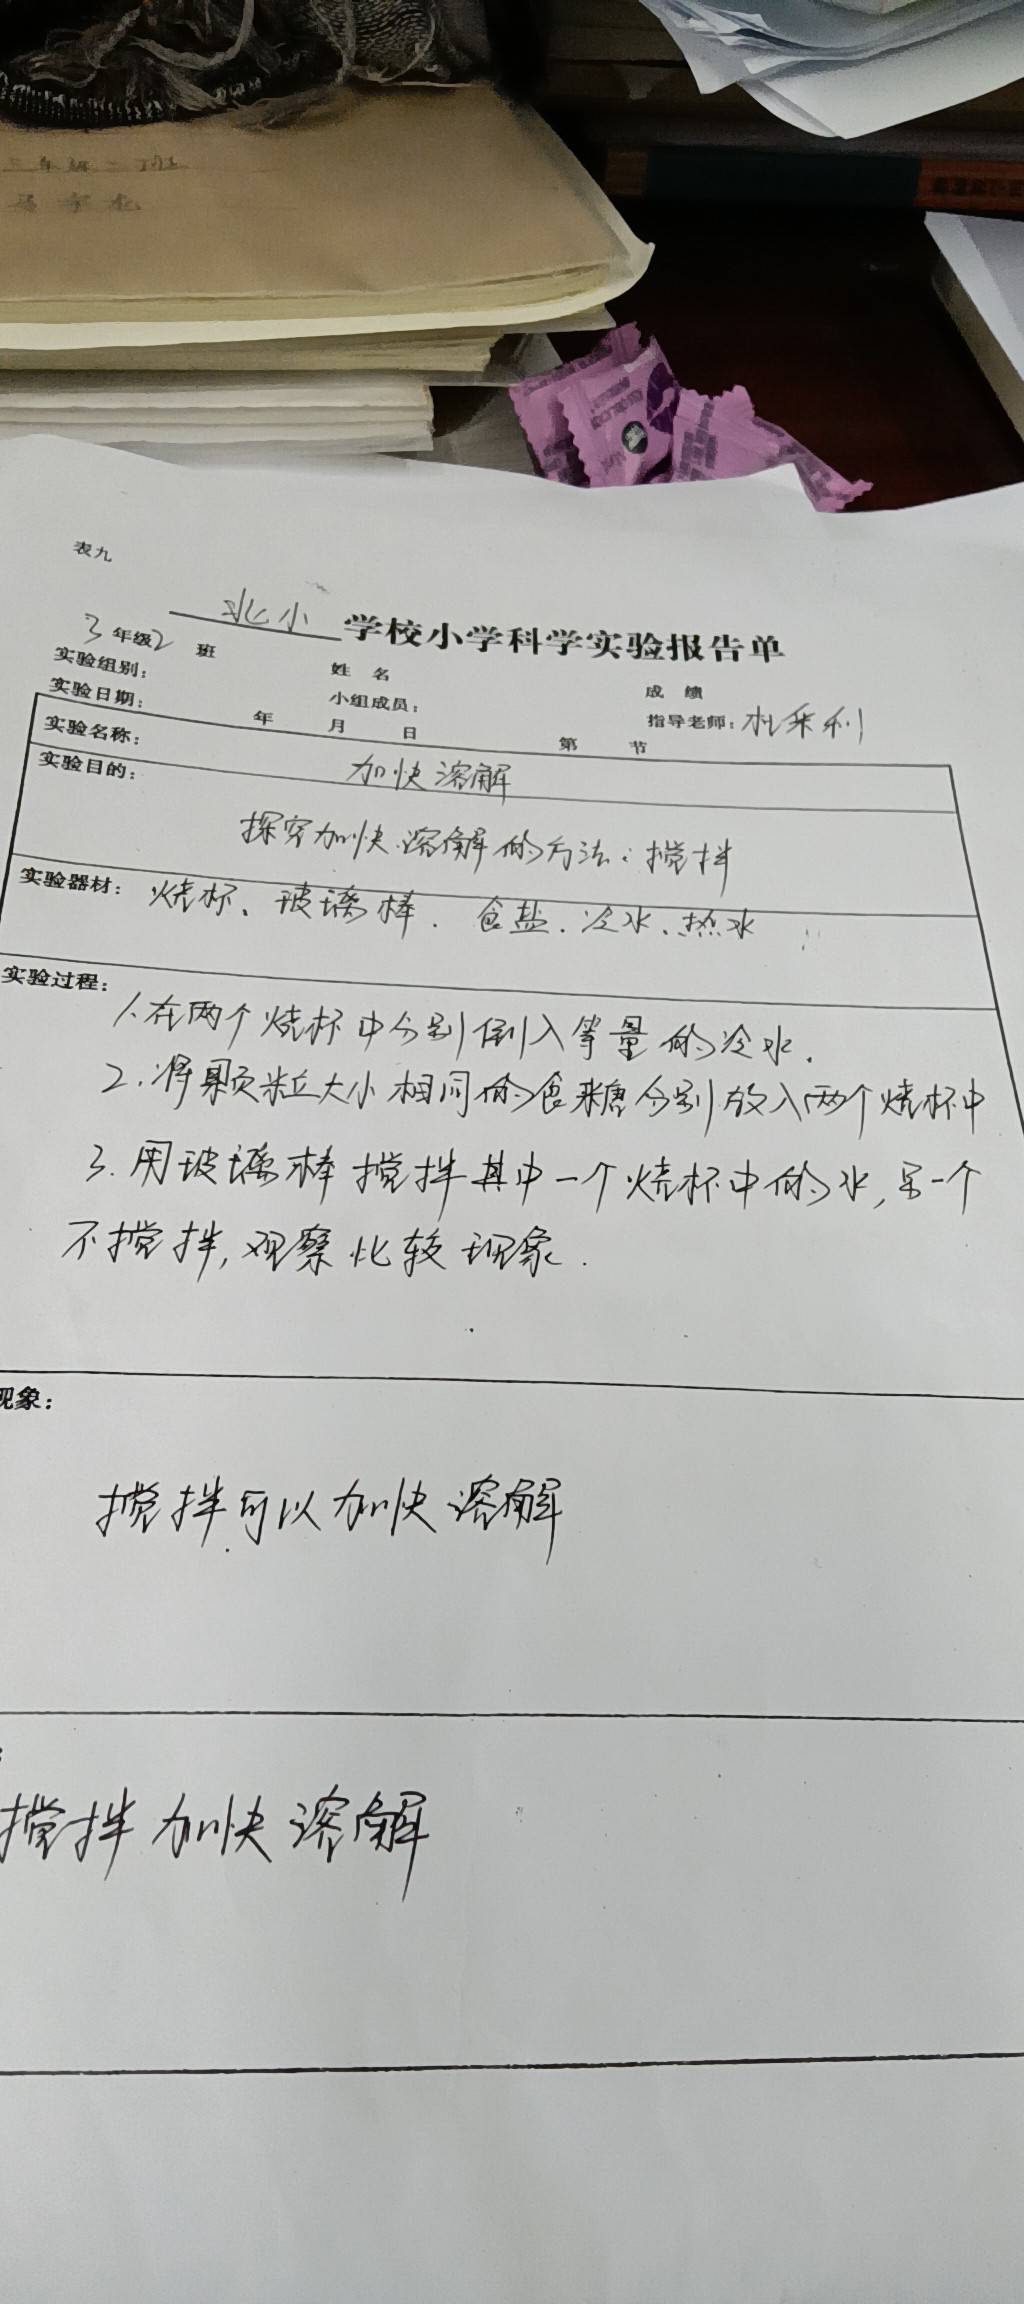 三年级二班
表九
北小学校小学科学实验报告单
3年级2班 姓名 成绩
实验组别： 小组成员： 指导老师：杜采利
实验日期： 年 月 日 第 节
实验名称： 加快溶解
实验目的：
探究加快溶解的方法：搅拌
实验器材：烧杯、玻璃棒．食盐．冷水、热水
实验过程：
1.在两个烧杯中分别倒入等量的冷水．
2.将颗粒大小相同的食糖分别放入两个烧杯中
3.用玻璃棒搅拌其中一个烧杯中的水，另一个
不搅拌，观察比较现象．
现象：
搅拌可以加快溶解
搅拌加快溶解